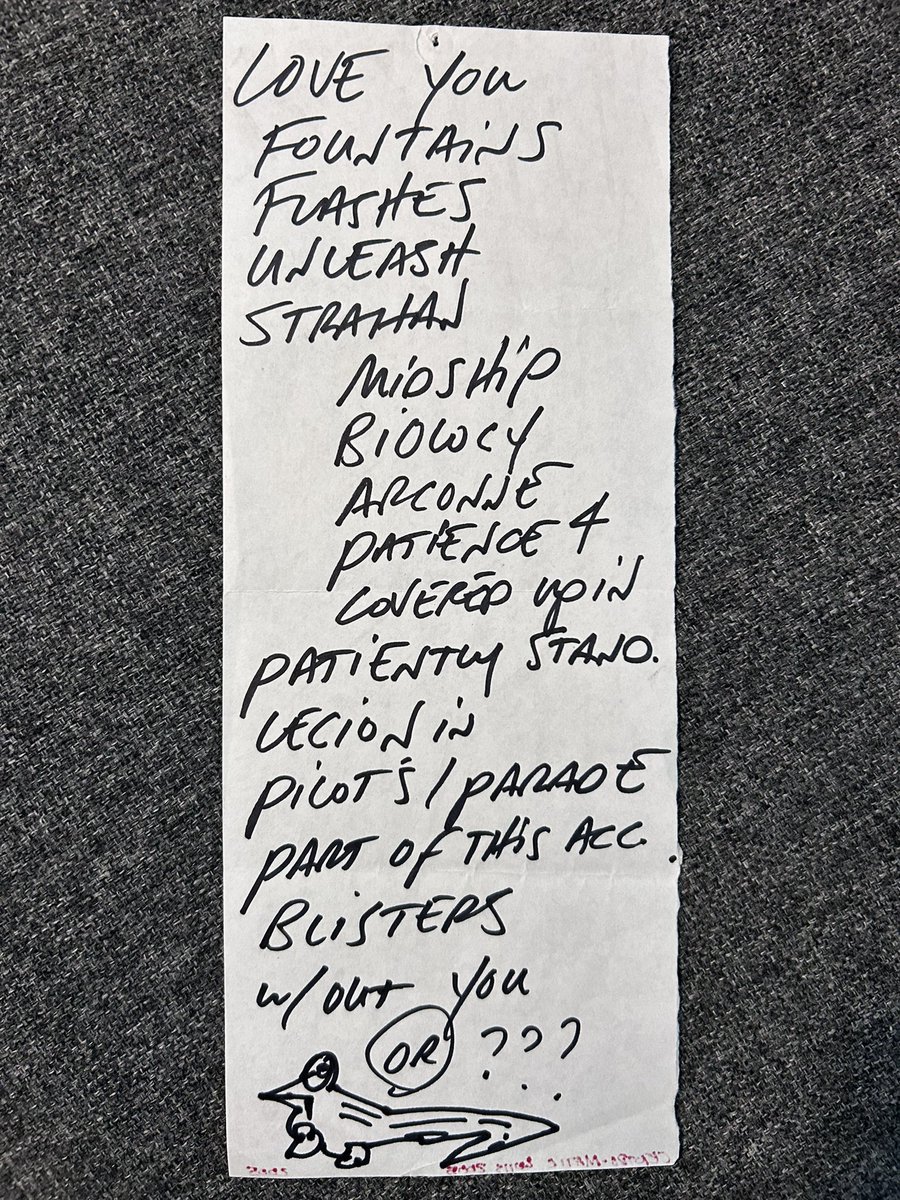 LOVE YOU
FOUNTAINS
FLASHES
UNLEASH
STRAHAN
MIDSHIP
BIOLOGY
ARCONNE
PATIENCE 4
COVERED up in
PATIENTLY STAND.
LEGION in
PILOT'S / PARADE
PART OF THIS ACC.
BLISTERS
w/out you
OR ???